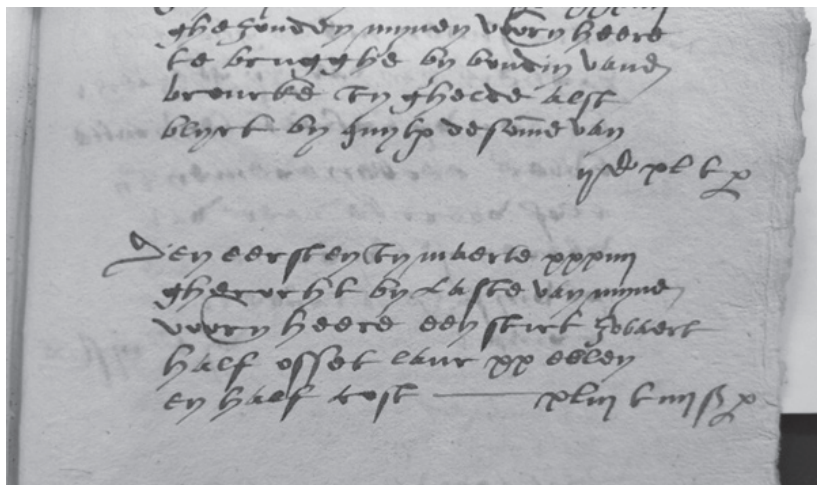 ghesonden mynen voorn heere
te brugghe by boudin vand
broucke in ghelde alst
blyct by quyt desomme van
ijc xl £ p
Den eersten in maerte xxxiiij
ghecocht by laste van mynen
voorn heere een stict zwaert
half osset lanc xx ellen
en half cost xliij £ iiij ß p